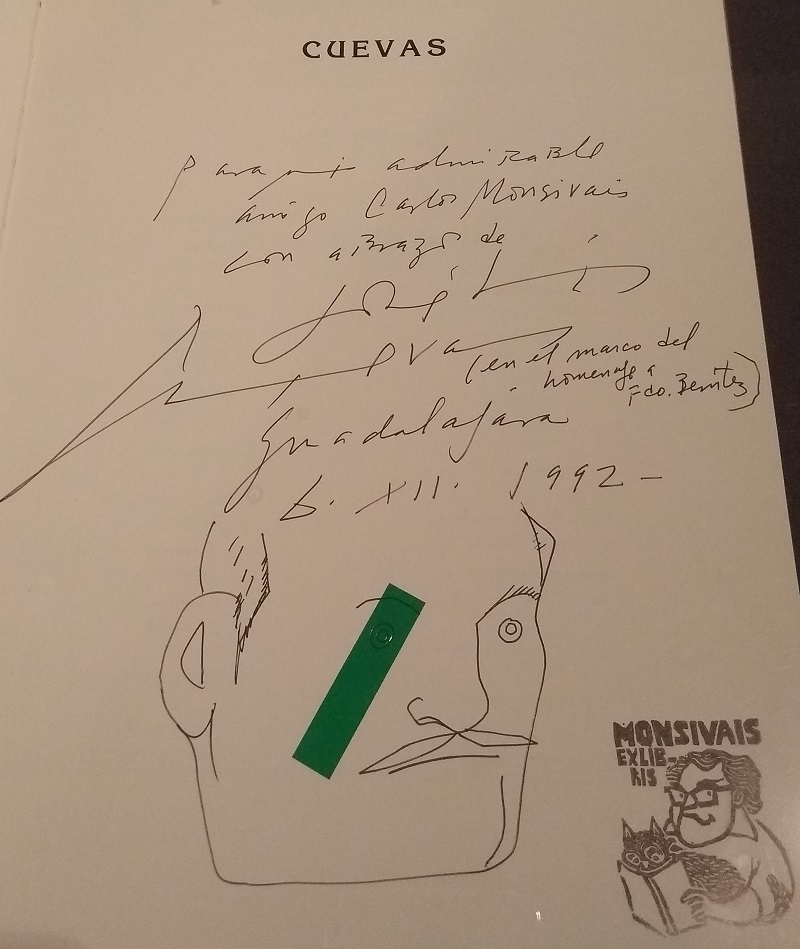 CUEVAS
Para mi admirable
amigo Carlos Monsivais
con abrazo de
José Luis
Cuevas
(en el marco del
homenaje a
Fdo. Benítez)
Guadalajara
6. XII. 1992-
MONSIVAIS
EXLIB-
RIS